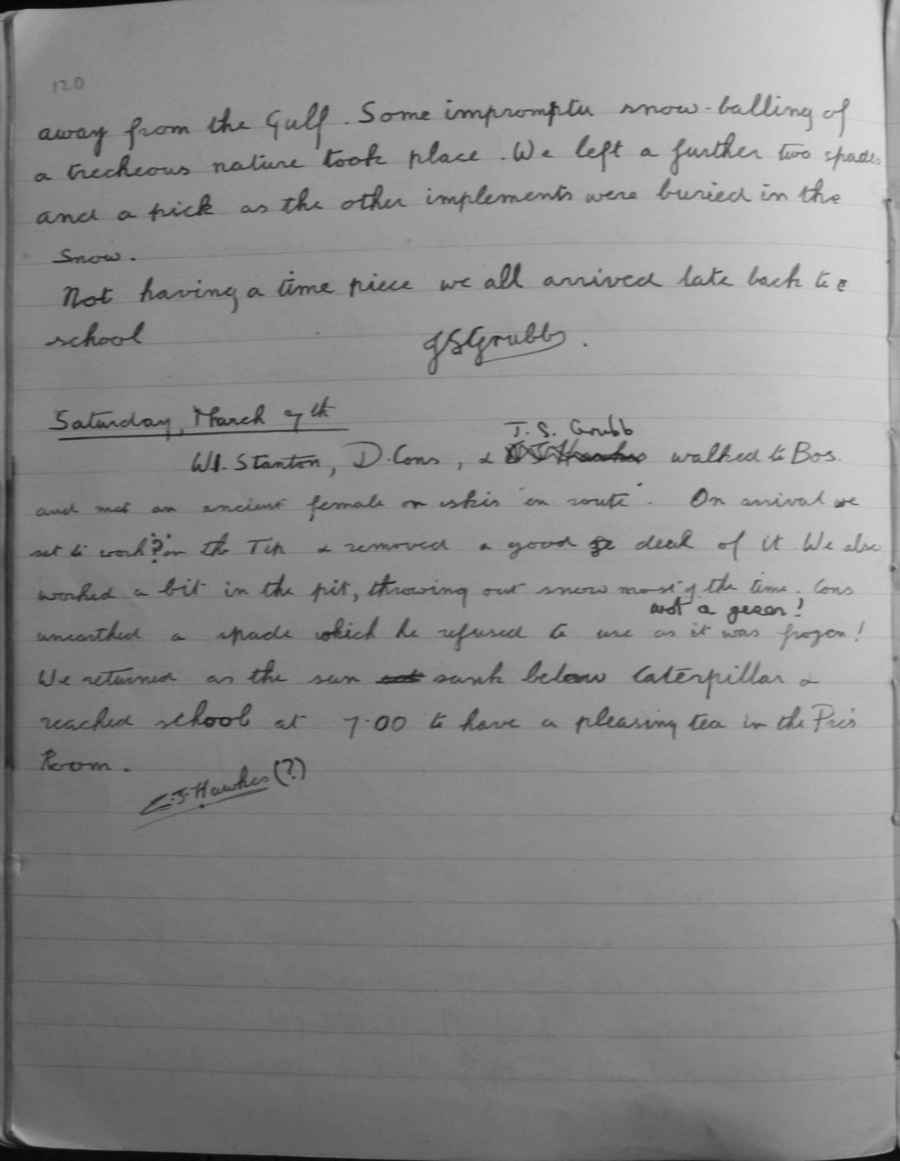 120
away from the Gulf. Some impromptu snow-balling of
a trecheous nature took place. We left a further two spades
and a pick as the other implements were buried in the
snow.
Not having a time piece we all arrived late back to
school
JSGrubb.
Saturday, March 7th
J. S. Grubb
W.I. Stanton, D. Cons, & walked to Bos.
and met an ancient female on skis "en route". On arrival we
set to work? on the Tip & removed a good deal of it We also
worked a bit in the pit, throwing out snow most of the time. Cons
not a geeen!
unearthed a spade which he refused to use as it was frozen!
We returned as the sun sank below Caterpillar &
reached school at 7.00 to have a pleasing tea in the Pre's
Room.
C.J. Hawkes (?)